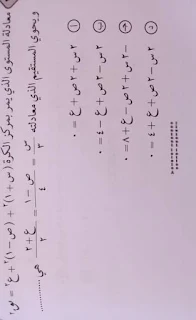 معادلة المستوى الذي يمر بمركز الكرة (س + ١)٢ + (ص − ١)٢ + ع٢ =
ويحوي المستقيم الذي معادلته س/٣ = ص − ١/٤ = ع + ٢/٢ هي ..........
أ ٢ س + ٢ ص + ع = ٠
ب ٢ س − ٢ ص + ع − ٤ = ٠
ج − ٢ س + ٢ ص − ع + ٨ = ٠
د ٢ س − ٢ ص + ع + ٤ = ٠